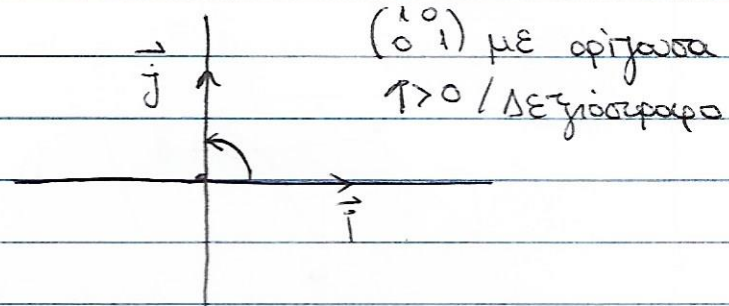 (1 0
0 1) με ορίζουσα
1>0 / Δεξιόστροφο
j
i